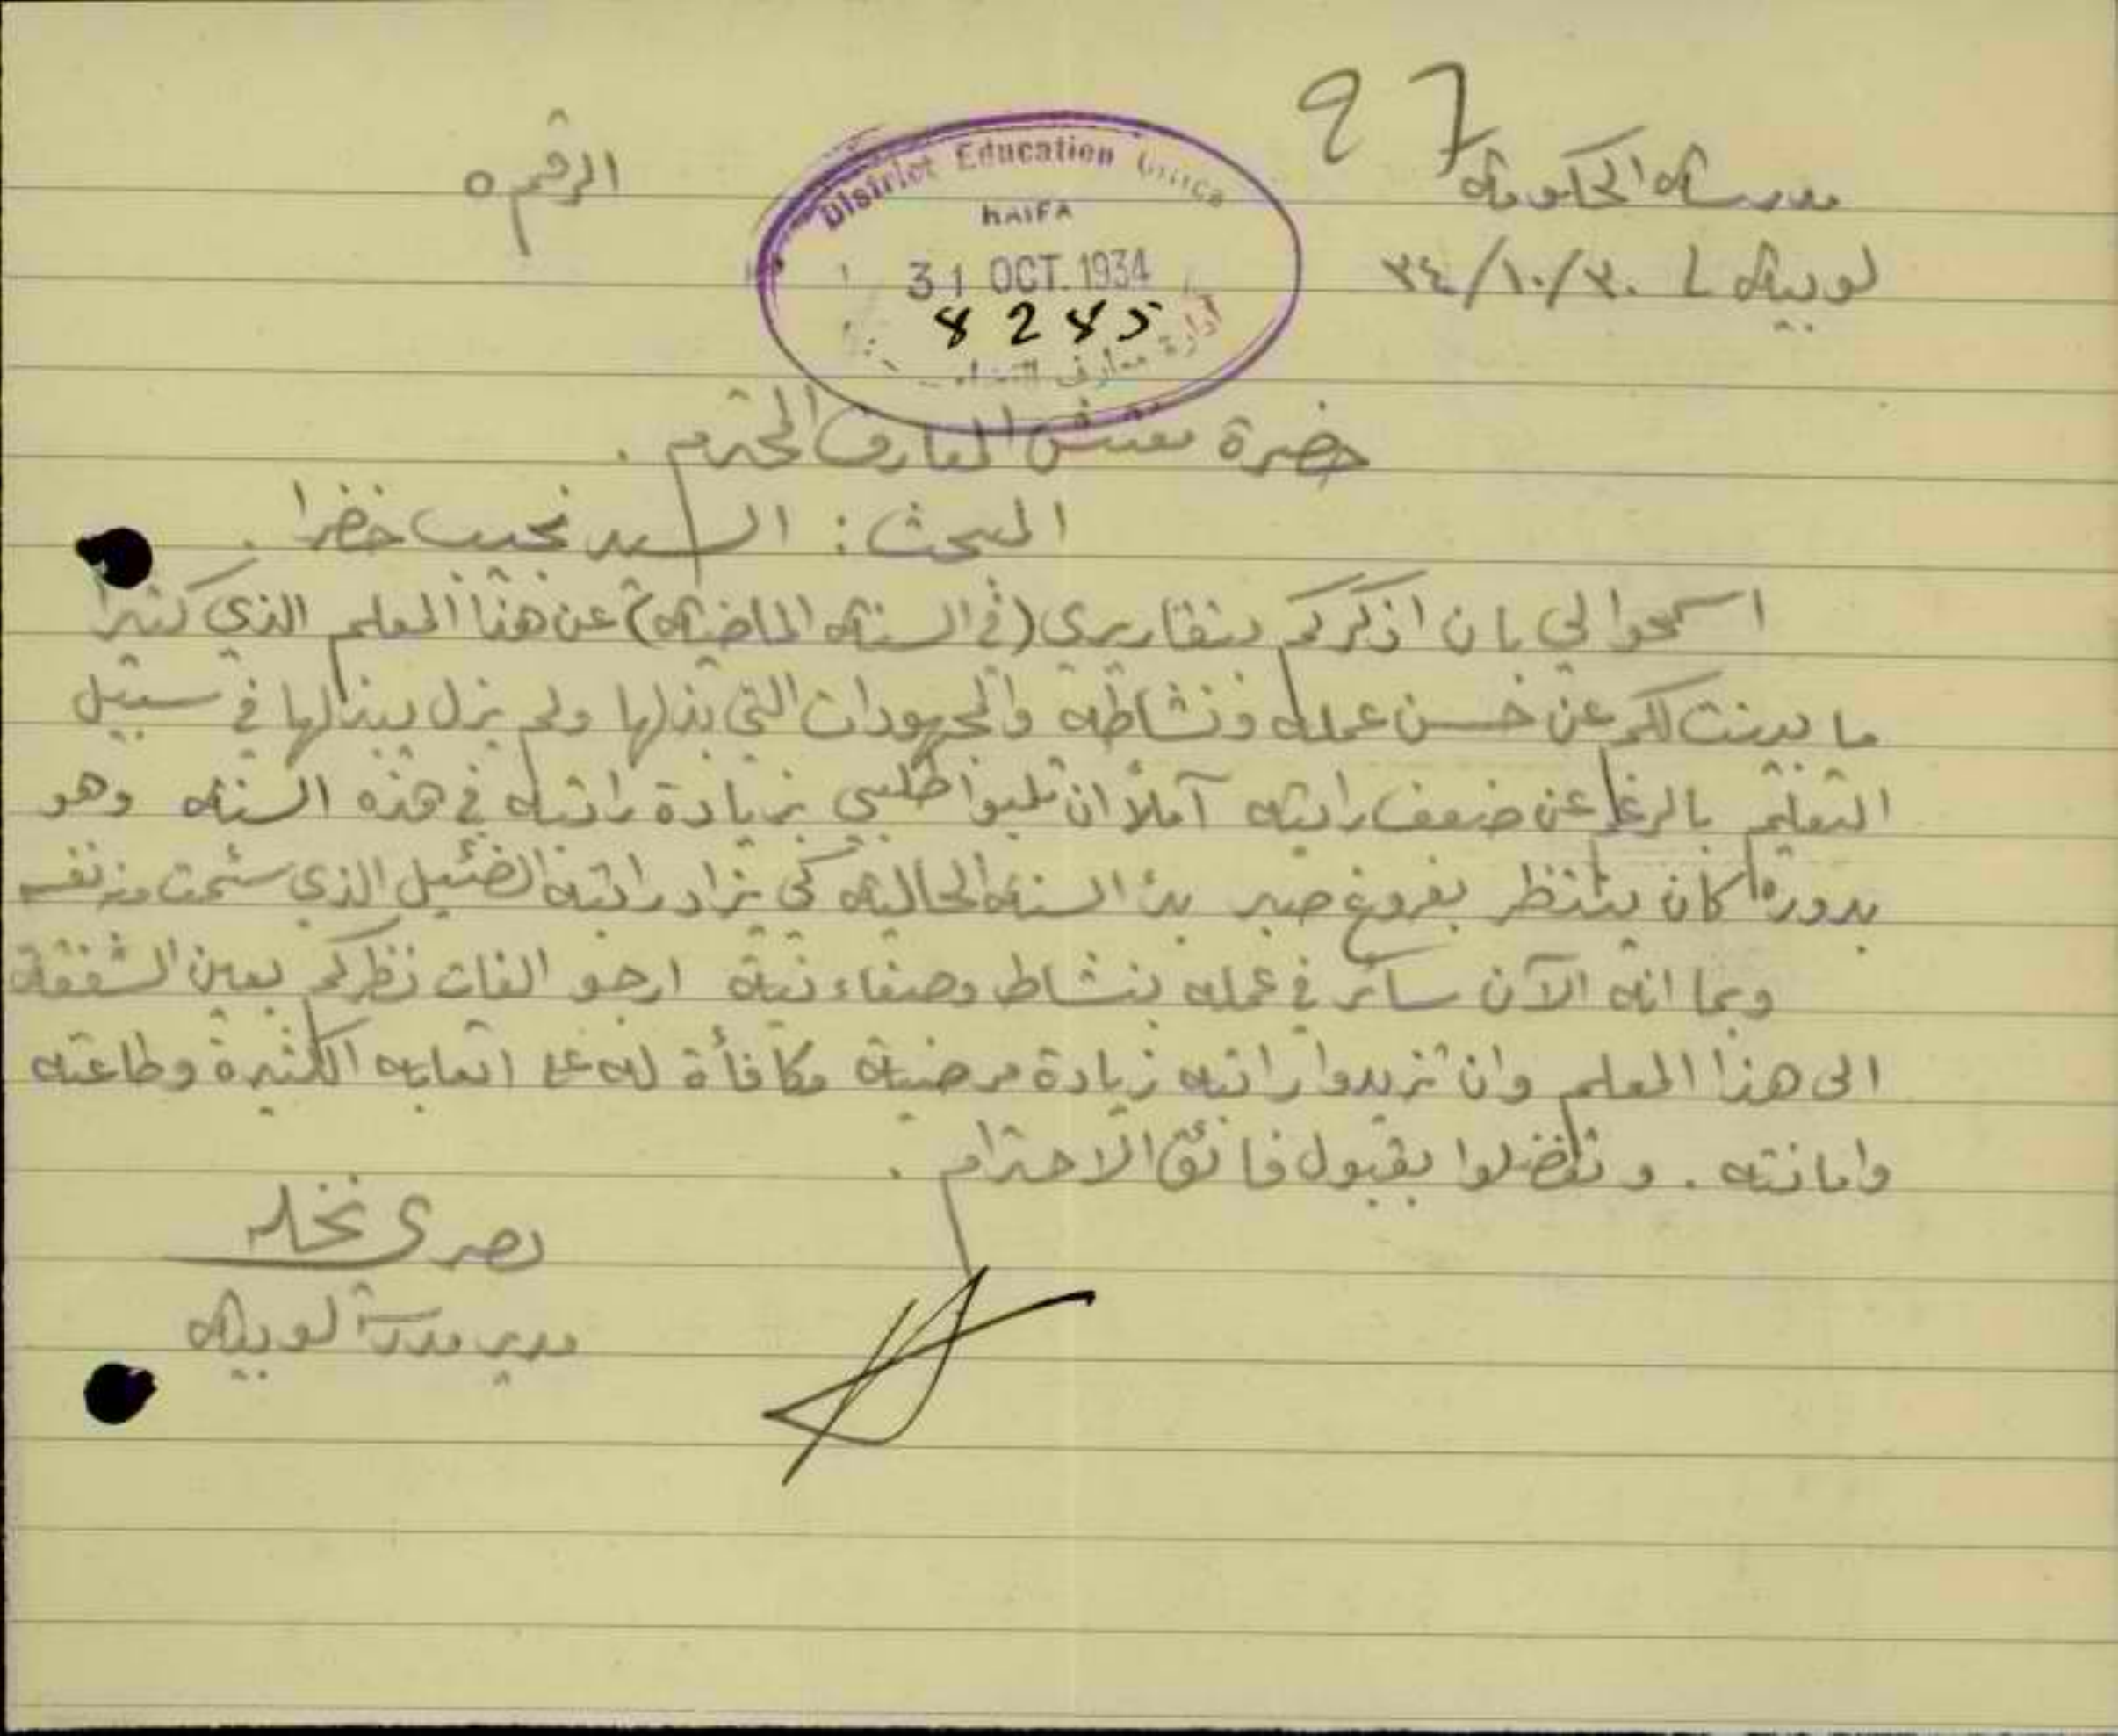 97
مدرسة الحكومة
الرقم ٥
لوبيه في ٣٠/١٠/٣٤
District Education Office
HAIFA
31 OCT. 1934
8285
ادارة معارف
حضرة مفتش المعارف المحترم .
المبحث : السيد نجيب خضرا .
اسمحوا لي بان اذكركم بتقاريري (في السنة الماضية) عن هذا المعلم الذي كثيرا
ما بينت لكم عن حسن عمله ونشاطه والمجهودات التي بذلها ولم يزل يبذلها في سبيل
التعليم بالرغم عن ضعف راتبه آملاً ان تلبوا طلبي بزيادة راتبه في هذه السنه وهو
بدوره كان ينتظر بفروغ صبر بدء السنة الحالية كي يزاد راتبه الضئيل الذي سئمت منه نفسه
وبما انه الآن سائر في عمله بنشاط وصفاء نية ارجو الفات نظركم بعين الشفقة
الى هذا المعلم وان تزيدوا راتبه زيادة مرضية مكافأة له على اتعابه الكثيرة وطاعته
وامانته . وتفضلوا بقبول فائق الاحترام .
نصري نخله
مدير مدرسة لوبيه